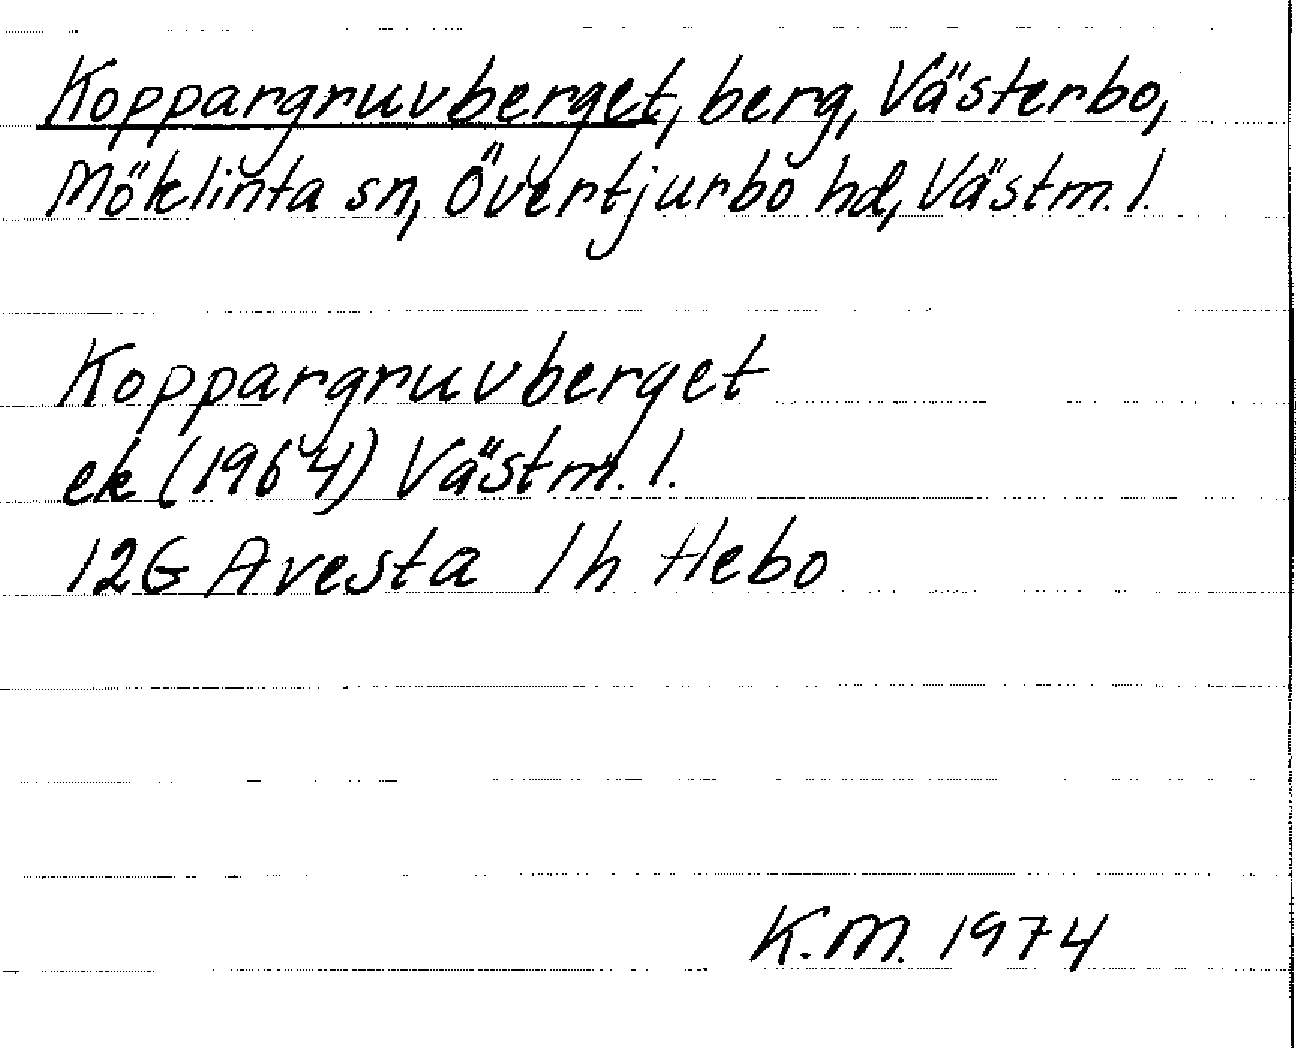 Koppargruvberget, berg, Västerbo,
Möklinta sn, Övertjurbo hd, Västm. l.
Koppargruvberget
ek (1964) Västm. l.
12G Avesta 1h Hebo
K.M. 1974